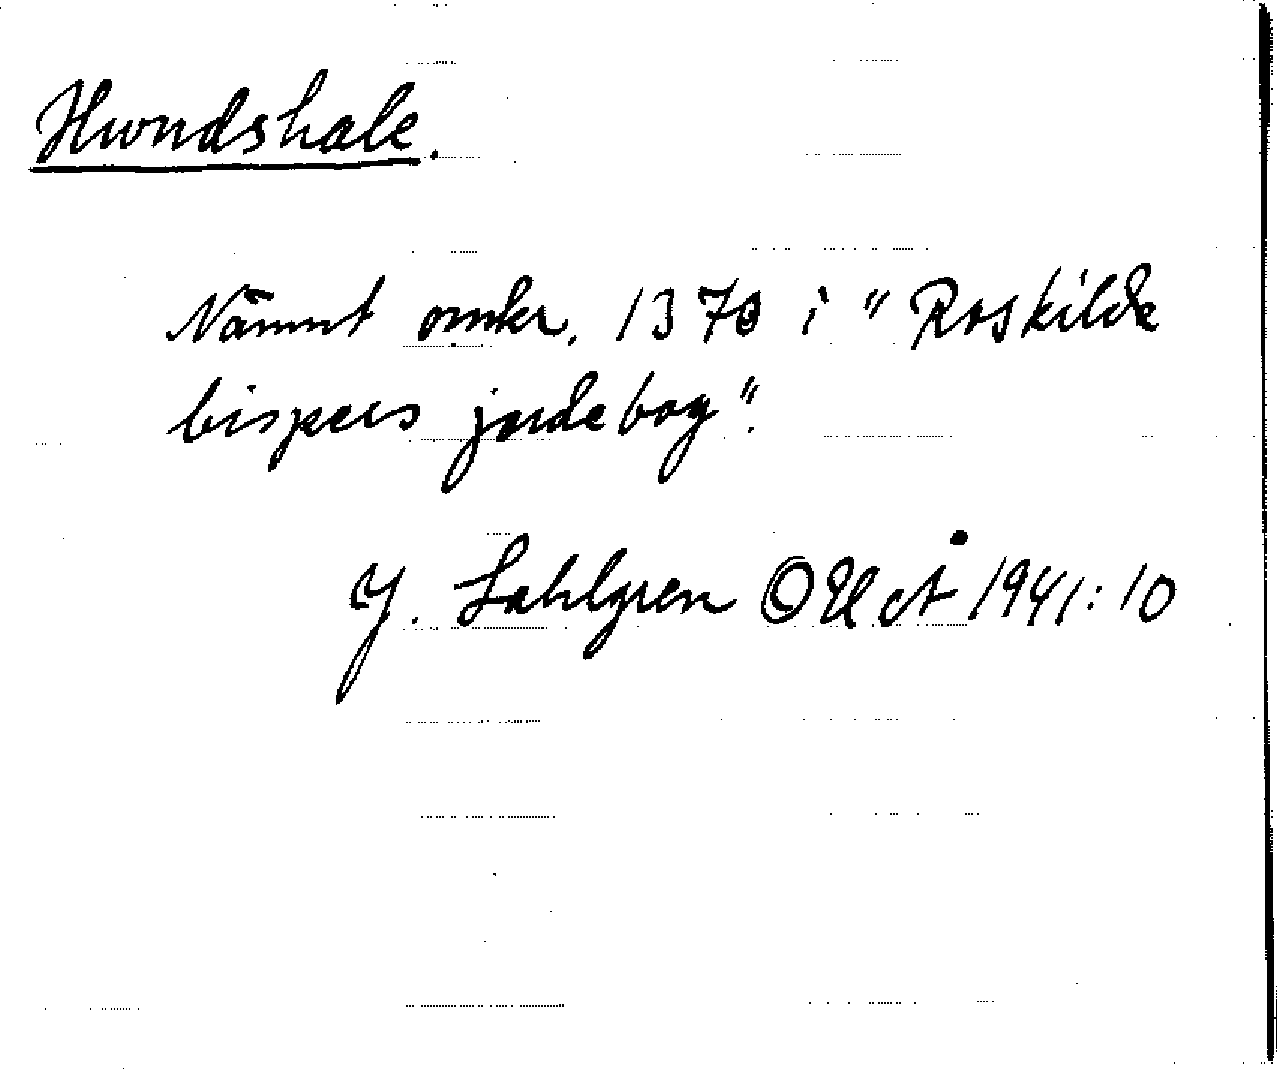 Hundshale.
Nämnt omkr. 1370 i "Roskilde
bispers jordebog".
J. Sahlgren OUÅ 1941:10